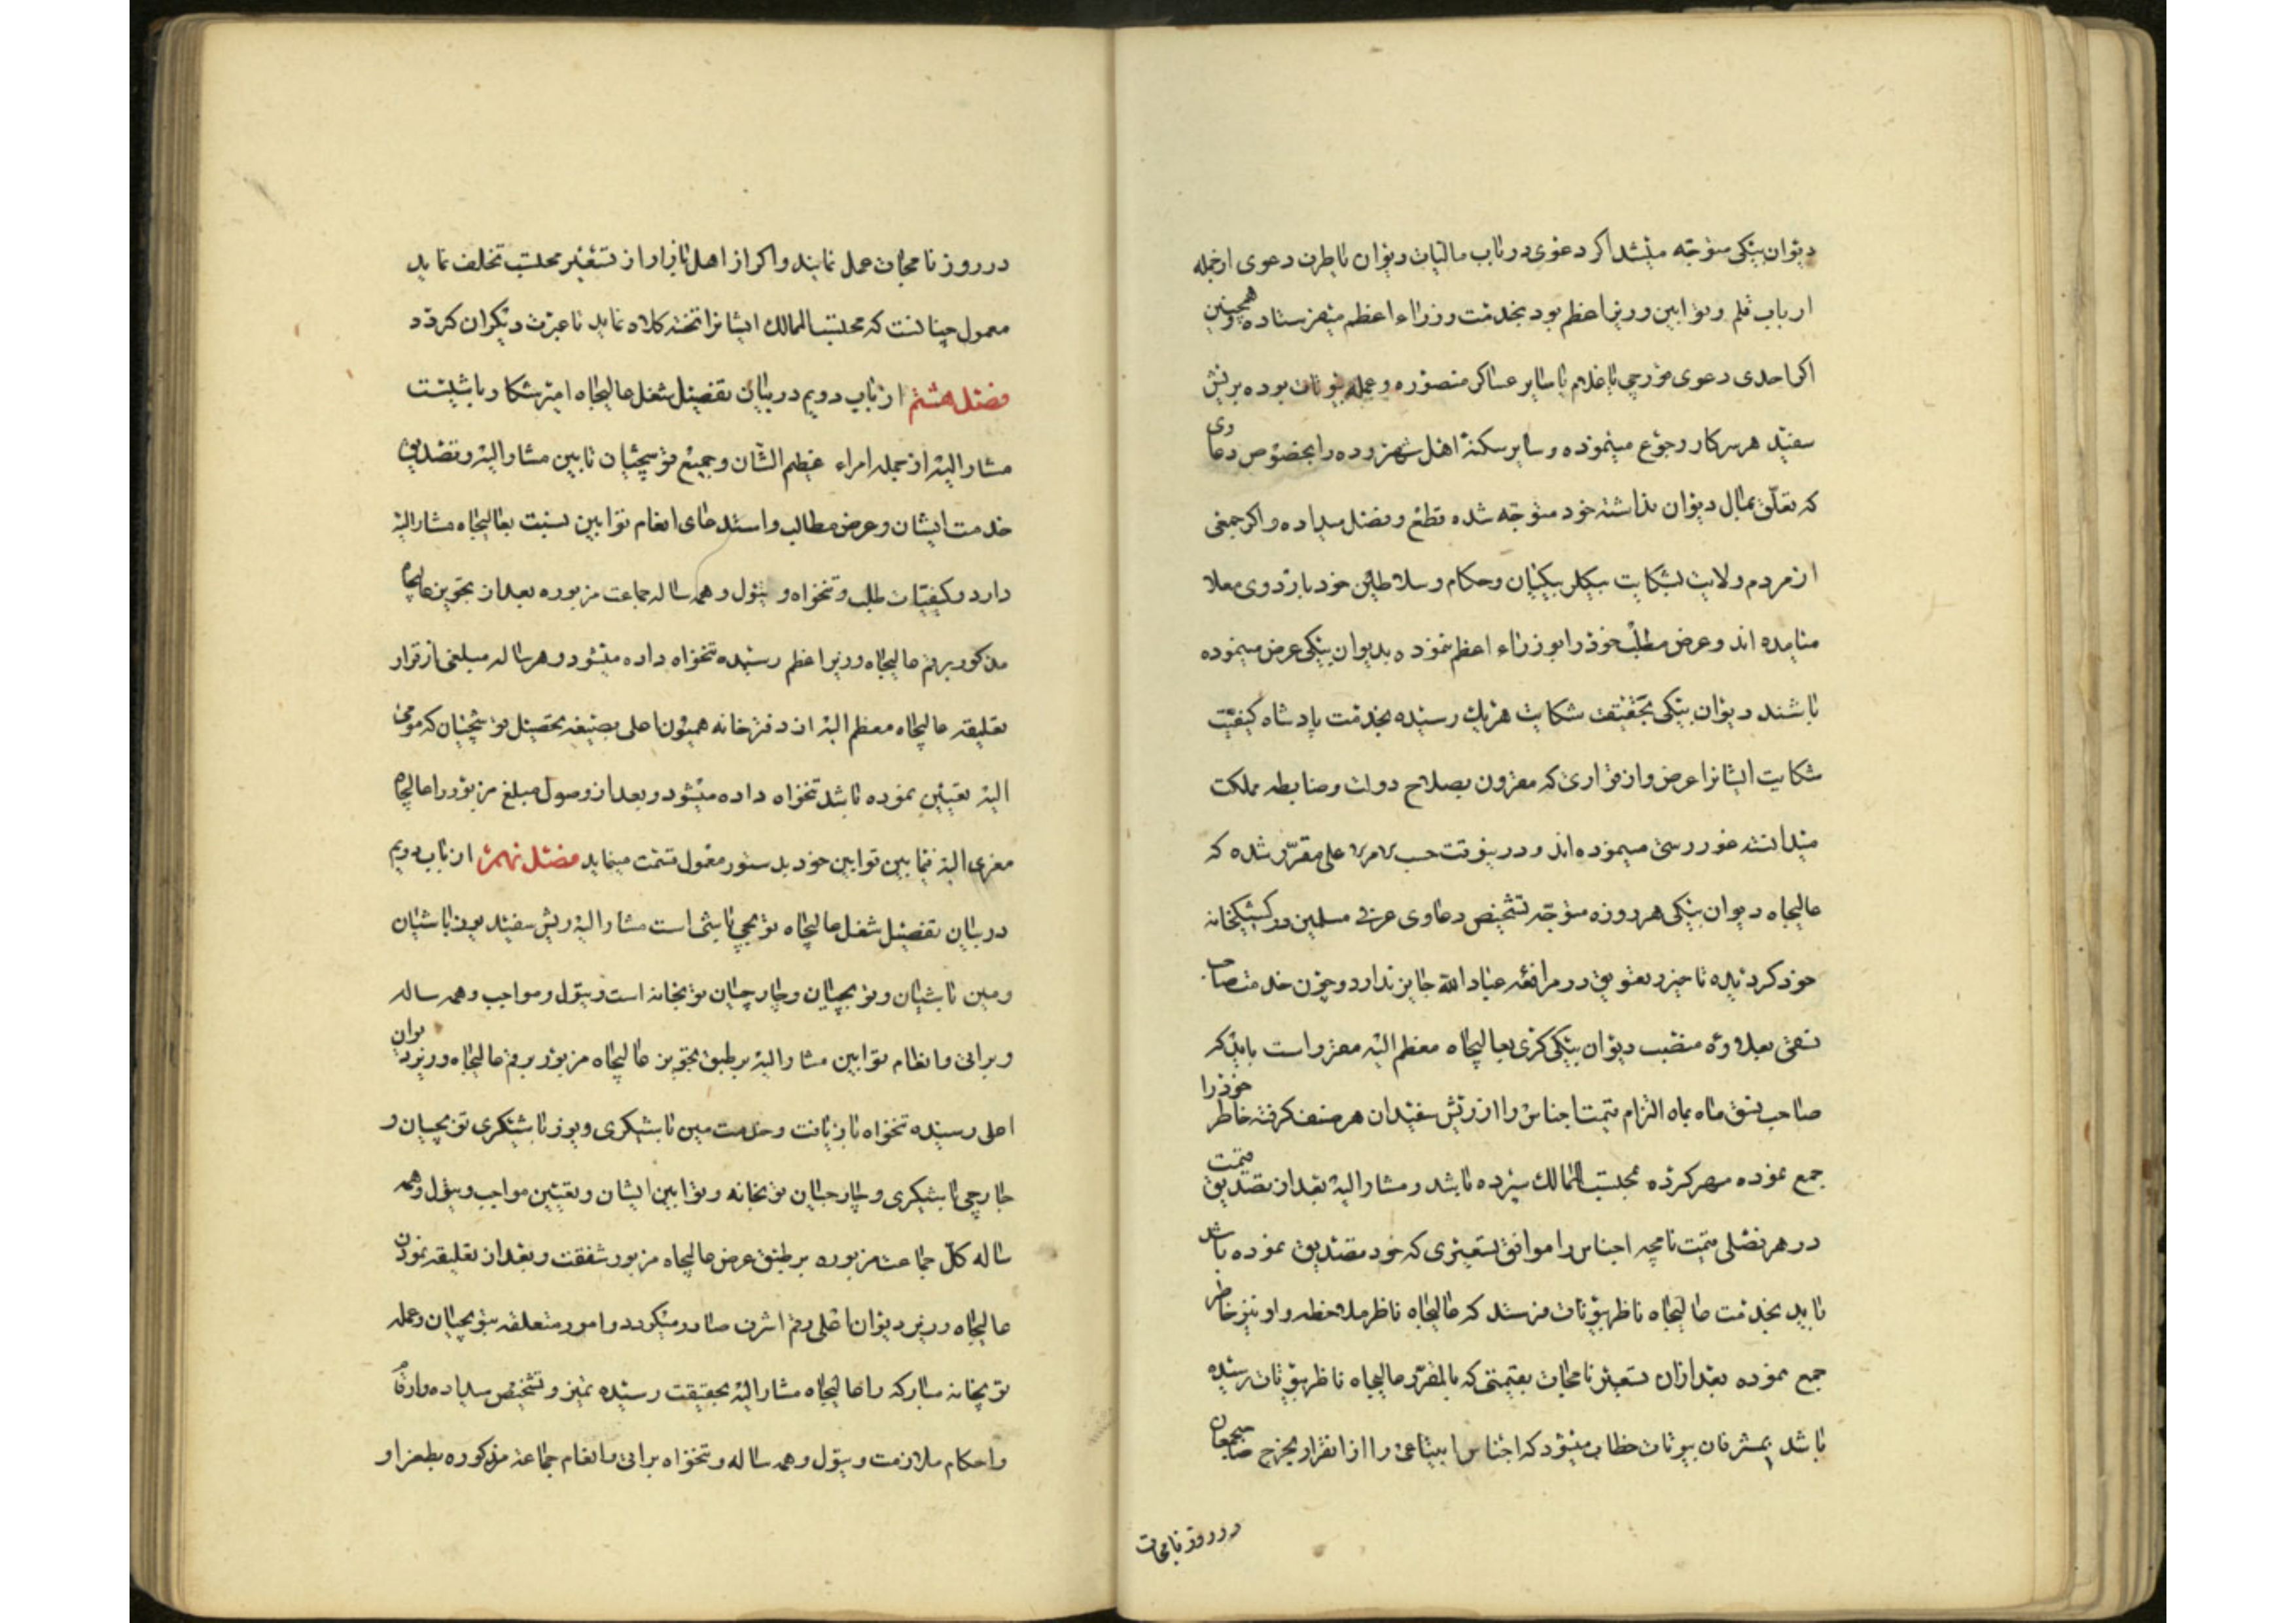 دیوان بیکی متوجه میشد اکر دعوی در باب مالیات دیوان یا طرف دعوی ازجمله
ارباب قلم و توابین وزیر اعظم بود بخدمت وزراء اعظم میفرستاده و همچنین
اکر احدی دعوی قورچی یا غلام یا سایر عساکر منصوره و عمله بیوتات بوده بریش
سفید هر سرکار رجوع مینموده و سایر سکنهٔ اهل شهر و ده را بخصوص دعاوی
که تعلّق بمال دیوان نداشته خود متوجه شده قطع و فصل میداده و اکر جمعی
از مردم ولایت بشکایت بیکلربیکیان و حکام و سلاطین خود باردوی معلا
میامده اند و عرض مطلب خود را بوزراء اعظم ننموده بدیوان بیکی عرض مینموده
باشند دیوان بیکی بحقیقت شکایت هریک رسیده بخدمت پادشاه کیفیت
شکایت ایشانرا عرض و از قراری که مقرون بصلاح دولت و ضابطه مملکت
میدانسته غوررسی مینموده اند و درینوقت حسب الامر الاعلی مقرّر شده که
عالیجاه دیوان بیکی هرروزه متوجّه تشخیص دعاوی عرفی مسلمین در کشیکخانه
خود کردیده تاخیر و تعویق در مرافعه عباد الله جایز ندارد و چون خدمت صاحب
نسقی بعلاوهٔ منصب دیوان بیکی کری بعالیجاه معظم الیه مقرر است باید که
صاحب نسق ماه بماه التزام قیمت اجناس را از ریش سفیدان هر صنف کرفته خاطر خود را
جمع نموده مهر کرده بمحتسب الممالک سپرده باشد و مشار الیه بعد از تصدیق قیمت
در هر فصلی قیمت نامچه اجناس را موافق تسعیری که خود تصدیق نموده باشد
باید بخدمت عالیجاه ناظر بیوتات فرستد که عالیجاه ناظر ملاحظه و او نیز خاطر
جمع نموده بعد از ان تسعیر نامجات بقیمتی که بالمقرّر عالیجاه ناظر بیوتات رسیده
باشد بمشرفان بیوتات خطاب میشود که اجناس ابتیاعی را از انقرار بخرج صاحبجمعان
در روزنامجات
در روزنامجات عمل نمایند و اکر از اهل بازار از تسعیر محتسب تخلف نماید
معمول چنانست که محتسب الممالک ایشانرا تخته کلاه نماید تا عبرت دیکران کردد
فصل هشتم از باب دویم در بیان تفصیل شغل عالیجاه امیر شکار باشیست
مشار الیه از جمله امراء عظیم الشّان و جمیع قوشچیان تابین مشار الیه و تصدیق
خدمت ایشان و عرض مطالب و استدعای انعام توابین نسبت بعالیجاه مشارالیه
دارد و کیفیات طلب و تنخواه و تیول و همه ساله جماعت مزبوره بعد از تجویز عالیجاه
مذکور برقم عالیجاه وزیر اعظم رسیده تنخواه داده میشود و هرساله مبلغی از قرار
تعلیقه عالیجاه معظم الیه از دفترخانه همیون اعلی بصیغه تحصیل قوشچیان که مومی
الیه تعیین نموده باشد تنخواه داده میشود و بعد از وصول مبلغ مزبور را عالیجاه
معزی الیه فیمابین توابین خود بدستور معمول قسمت مینماید فصل نهم از باب دویم
در بیان تفصیل شغل عالیجاه توپچی باشی است مشار الیه ریش سفید یوزباشیان
و مین باشیان و توپچیان و جارچیان توپخانه است و تیول و مواجب و همه ساله
و براتی و انعام توابین مشار الیه بر طبق تجویز عالیجاه مزبور برقم عالیجاه وزیر دیوان
اعلی رسیده تنخواه بازیافت و خدمت مین باشیکری و یوزباشیکری توپچیان و
جارچی باشیکری و جارچیان توپخانه و توابین ایشان و تعیین مواجب و تیول و همه
ساله کلّ جماعت مزبوره بر طبق عرض عالیجاه مزبور شفقت و بعد از تعلیقه نمودن
عالیجاه وزیر دیوان اعلی رقم اشرف صادر میکردد و امور متعلقه بتوپچیان و عمله
توپخانه مبارکه را عالیجاه مشار الیه بحقیقت رسیده تمیز و تشخیص میداده و ارقام
و احکام ملازمت و تیول و همه ساله و تنخواه براتی و انعام جماعة مذکوره بطغرا و